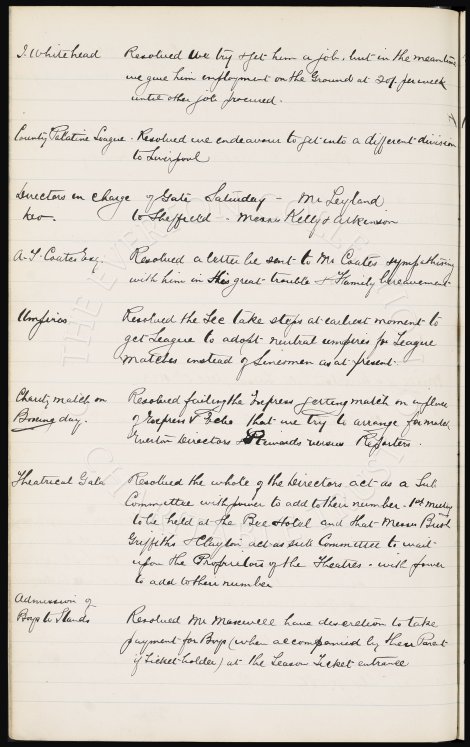 J. Whitehead Resolved we try & get him a job, but in the meantime
we give him employment on the Ground at 20/- per week
until other job procured.
County Palatine League. Resolved we endeavour to get into a different division
to Liverpool
Directors in charge of Gate Saturday - Mr Leyland
to Sheffield - Messrs Kelly & Atkinson
A. T. Coates Esq. Resolved a letter be sent to Mr Coates sympathising
with him in this great trouble & Family bereavement
Umpires Resolved the Sec take steps at earliest moment to
get League to adopt neutral umpires for League
Matches instead of Linesmen as at present.
Charity match on Resolved failing the Express getting match on
Boxing day. of Express v Echo that we try to arrange for match
Everton Directors & Stewards versus Reporters.
Theatrical Gala Resolved the whole of the Directors act as a Sub
Committee with power to add to their number. 1st meeting
to be held at the Bee Hotel and that Messrs Bush
Griffiths & Clayton act as sub Committee to wait
upon the Proprietors of the Theatres - with power
to add to their number
Admission of
Boys to Stands Resolved Mr Maxwell have discretion to take
payment for Boys (when accompanied by their Parent
if Ticket holder) at the Season Ticket entrance
THE EVERTON COLLECTION